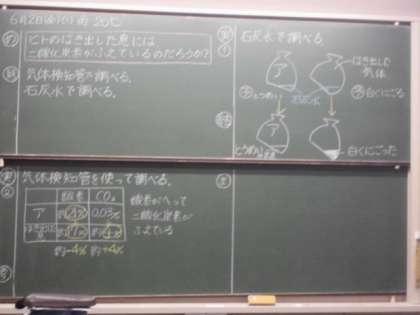 6月2日(金)(5)
ヒトのはき出した息には
二酸化炭素がふえているのだろうか?
気体検知管で調べる。
石灰水で調べる。
実
①
石灰水で調べる。
ア
はき出した
気体
とうめい
石灰水
白くにごる
ア
とうめい
白くにごった
実
②
気体検知管を使って調べる。
酸素 CO₂
ア 約21% 0.03%
はき出した 約17% 約4%
約-4% 約+4%
酸素がへって
二酸化炭素が
ふえている